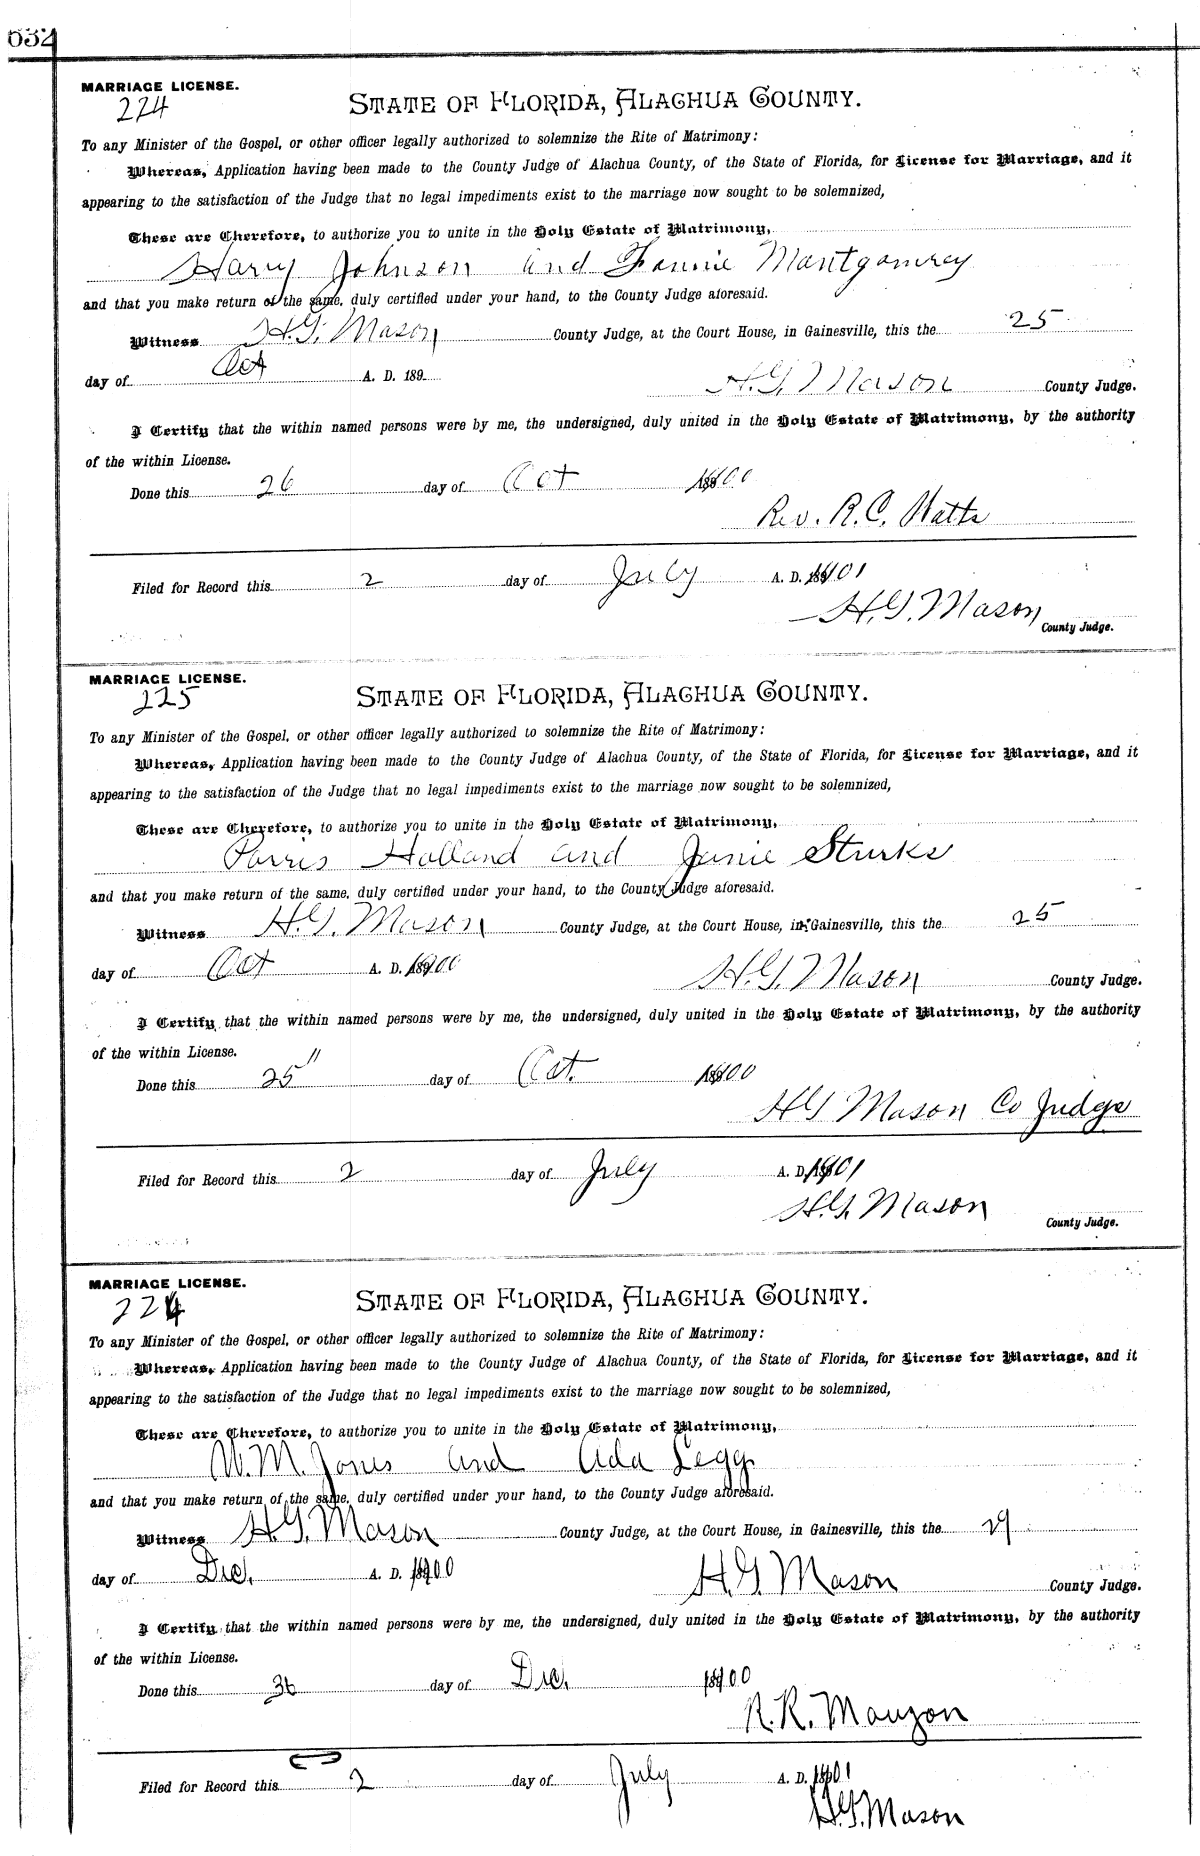 632
MARRIAGE LICENSE.
224
STATE OF FLORIDA, ALACHUA COUNTY.
To any Minister of the Gospel, or other officer legally authorized to solemnize the Rite of Matrimony:
Whereas, Application having been made to the County Judge of Alachua County, of the State of Florida, for License for Marriage, and it
appearing to the satisfaction of the Judge that no legal impediments exist to the marriage now sought to be solemnized,
These are Therefore, to authorize you to unite in the Holy Estate of Matrimony,
Harry Johnson and Fannie Montgomrey
and that you make return of the same, duly certified under your hand, to the County Judge aforesaid.
Witness H.G. Mason County Judge, at the Court House, in Gainesville, this the 25
day of Oct A. D. 189
H.G. Mason County Judge.
I Certify that the within named persons were by me, the undersigned, duly united in the Holy Estate of Matrimony, by the authority
of the within License.
Done this 26 day of Oct 1900
Rev. R.C. Watts
Filed for Record this 2 day of July A. D. 1901
H.G. Mason
County Judge.
MARRIAGE LICENSE.
225
STATE OF FLORIDA, ALACHUA COUNTY.
To any Minister of the Gospel, or other officer legally authorized to solemnize the Rite of Matrimony:
Whereas, Application having been made to the County Judge of Alachua County, of the State of Florida, for License for Marriage, and it
appearing to the satisfaction of the Judge that no legal impediments exist to the marriage now sought to be solemnized,
These are Therefore, to authorize you to unite in the Holy Estate of Matrimony,
Parris Holland and Janie Sturks
and that you make return of the same, duly certified under your hand, to the County Judge aforesaid.
Witness H.G. Mason County Judge, at the Court House, in Gainesville, this the 25
day of Oct A. D. 1900
H.G. Mason County Judge.
I Certify that the within named persons were by me, the undersigned, duly united in the Holy Estate of Matrimony, by the authority
of the within License.
Done this 25" day of Oct. 1900
H G Mason Co Judge
Filed for Record this 2 day of July A. D. 1901
H.G. Mason
County Judge.
MARRIAGE LICENSE.
224
STATE OF FLORIDA, ALACHUA COUNTY.
To any Minister of the Gospel, or other officer legally authorized to solemnize the Rite of Matrimony:
Whereas, Application having been made to the County Judge of Alachua County, of the State of Florida, for License for Marriage, and it
appearing to the satisfaction of the Judge that no legal impediments exist to the marriage now sought to be solemnized,
These are Therefore, to authorize you to unite in the Holy Estate of Matrimony,
W.M. Jones and Ada Legg
and that you make return of the same, duly certified under your hand, to the County Judge aforesaid.
Witness H.G. Mason County Judge, at the Court House, in Gainesville, this the 29
day of Dec. A. D. 1900
H.G. Mason County Judge.
I Certify that the within named persons were by me, the undersigned, duly united in the Holy Estate of Matrimony, by the authority
of the within License.
Done this 30 day of Dec. 1900
R.R. Mouzon
Filed for Record this 2 day of July A. D. 1901
H.G. Mason